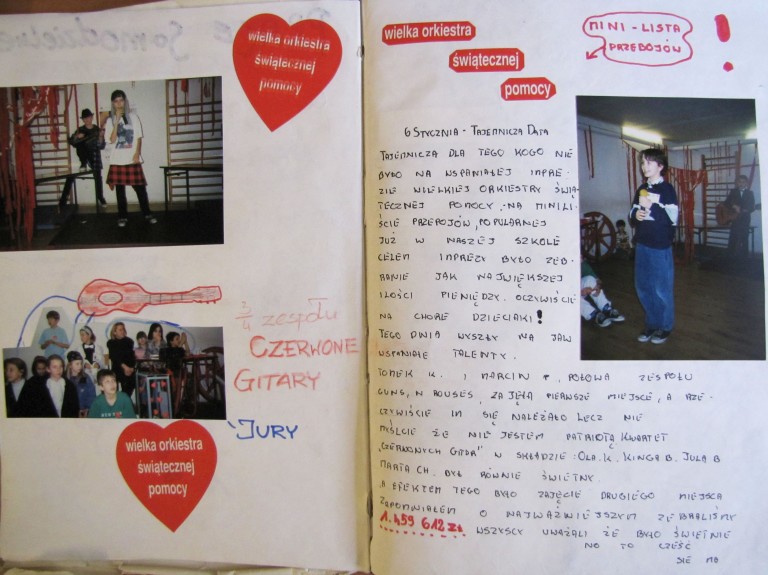 wielka orkiestra
świątecznej
pomocy
3/4 zespołu
CZERWONE
GITARY
JURY
wielka orkiestra
świątecznej
pomocy
wielka orkiestra
świątecznej
pomocy
MINI - LISTA
PRZEBOJÓW
!
6 STYCZNIA - TAJEMNICZA DATA
TAJEMNICZA DLA TEGO KOGO NIE
BYŁO NA WSPANIAŁEJ IMPRE-
ZIE WIELKIEJ ORKIESTRY ŚWIĄ-
TECZNEJ POMOCY - NA MINILI-
ŚCIE PRZEBOJÓW, POPULARNEJ
JUŻ W NASZEJ SZKOLE
CELEM IMPREZY BYŁO ZEB-
RANIE JAK NAJWIĘKSZEJ
ILOŚCI PIENIĘDZY. OCZYWIŚCIE
NA CHORE DZIECIAKI!
TEGO DNIA WYSZŁY NA JAW
WSPANIAŁE TALENTY.
TOMEK K. I MARCIN P., POŁOWA ZESPOŁU
GUNS, N ROUSES, ZAJĘŁA PIERWSZE MIEJSCE, A RZE-
CZYWIŚCIE IM SIĘ NALEŻAŁO LECZ NIE
MYŚLCIE ŻE NIE JESTEM PATRIOTĄ KWARTET
"CZERWONYCH GITAR" W SKŁADZIE: OLA. K. KINGA B. JULA B
MARTA CH. BYŁ RÓWNIE ŚWIETNY.
A EFEKTEM TEGO BYŁO ZAJĘCIE DRUGIEGO MIEJSCA
ZAPOMNIAŁEM O NAJWAŻNIEJSZYM ZEBRALIŚMY
1.459 612 ZŁ WSZYSCY UWAŻALI ŻE BYŁO ŚWIETNIE
NO TO CZEŚĆ